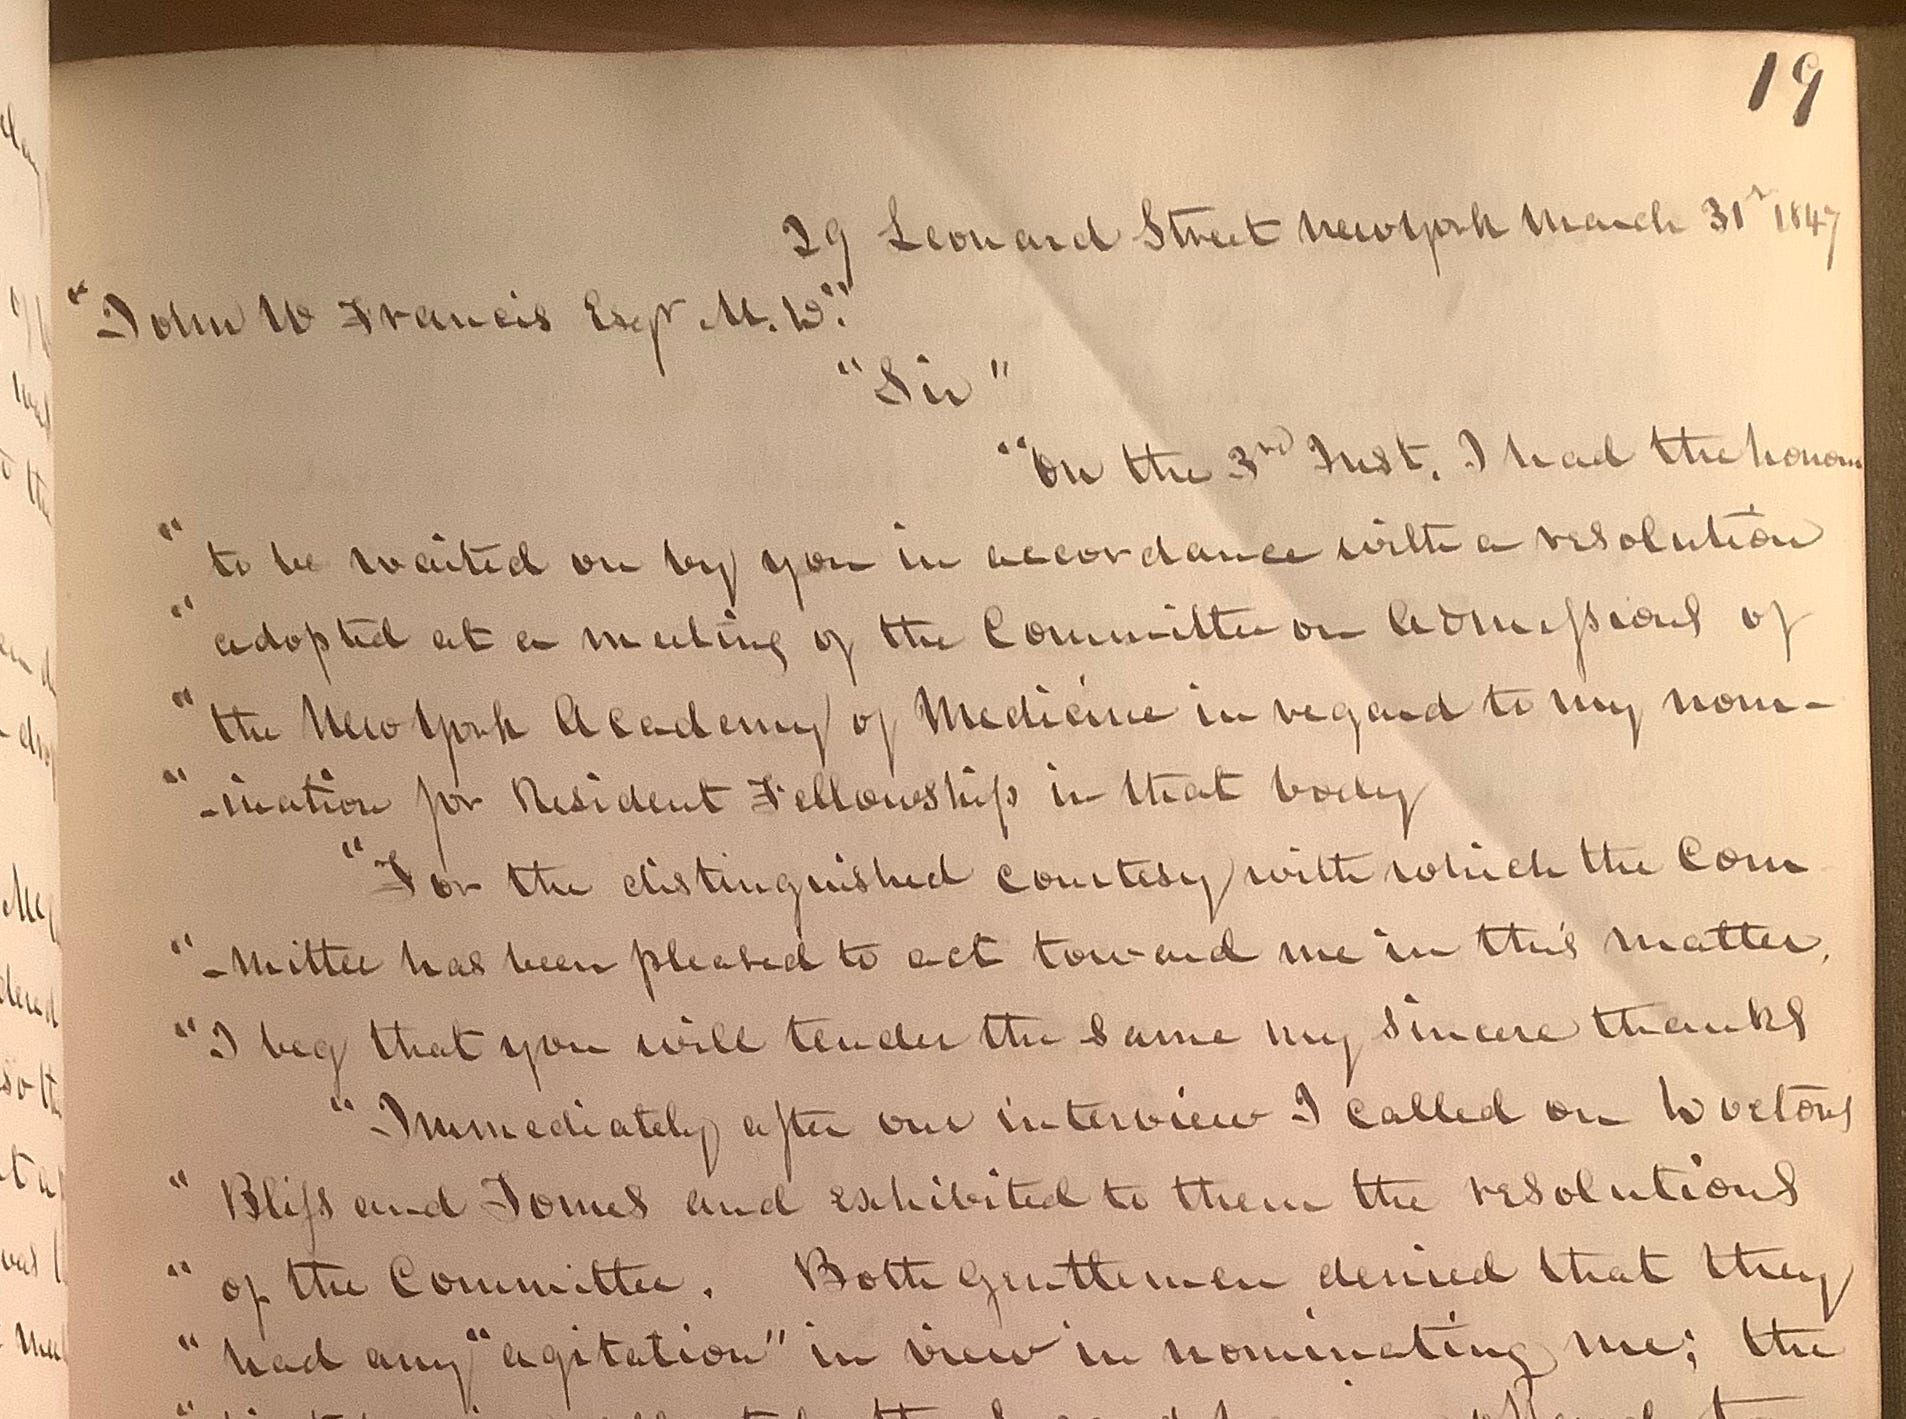 19
29 Leonard Street New York March 31st 1847
"John W Francis Esqr M.D."
"Sir"
"On the 3rd Inst. I had the honour
" to be waited on by you in accordance with a resolution
" adopted at a meeting of the Committee on Admissions of
" the New York Academy of Medicine in regard to my nom-
" -ination for Resident Fellowship in that body
"For the distinguished courtesy with which the Com
" -mittee has been pleased to act toward me in this matter,
" I beg that you will tender the same my sincere thanks
" Immediately after our interview I called on Doctors
" Bliss and Tomes and exhibited to them the resolutions
" of the Committee. Both gentlemen denied that they
" had any "agitation" in view in nominating me; the